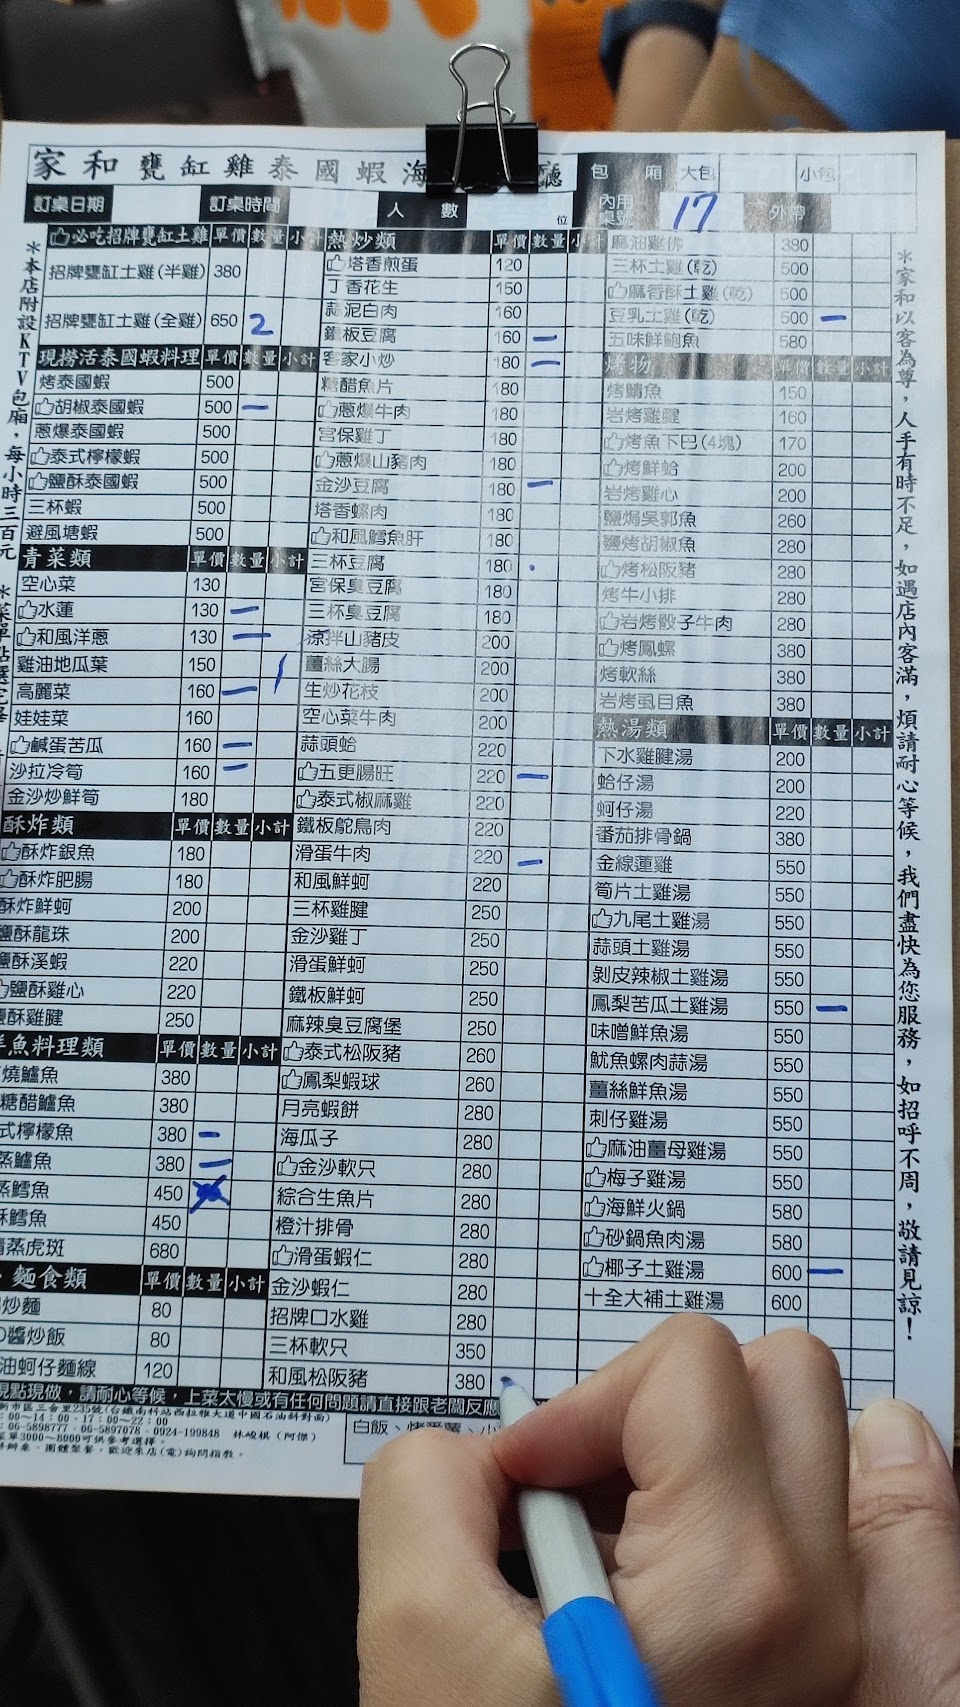 家和甕缸雞泰國蝦海 廳 包廂 大包 小包
訂桌日期 訂桌時間 人數 位 內用桌號 17 外帶
必吃招牌甕缸土雞 單價 數量 小計
招牌甕缸土雞(半雞) 380
招牌甕缸土雞(全雞) 650 2
現撈活泰國蝦料理 單價 數量 小計
烤泰國蝦 500
胡椒泰國蝦 500 一
蔥爆泰國蝦 500
泰式檸檬蝦 500
鹽酥泰國蝦 500
三杯蝦 500
避風塘蝦 500
青菜類 單價 數量 小計
空心菜 130
水蓮 130 一
和風洋蔥 130 一
雞油地瓜葉 150
高麗菜 160 一
娃娃菜 160
鹹蛋苦瓜 160 一
沙拉冷筍 160 一
金沙炒鮮筍 180
酥炸類 單價 數量 小計
酥炸銀魚 180
酥炸肥腸 180
酥炸鮮蚵 200
鹽酥龍珠 200
鹽酥溪蝦 220
鹽酥雞心 220
鹽酥雞腱 250
魚料理類 單價 數量 小計
燒鱸魚 380
糖醋鱸魚 380
式檸檬魚 380 一
蒸鱸魚 380 一
蒸鱈魚 450
酥鱈魚 450
清蒸虎斑 680
麵食類 單價 數量 小計
炒麵 80
醬炒飯 80
油蚵仔麵線 120
熱炒類 單價 數量 小計
塔香煎蛋 120
丁香花生 150
蒜泥白肉 160
鐵板豆腐 160 一
客家小炒 180 一
糖醋魚片 180
蔥爆牛肉 180
宮保雞丁 180
蔥爆山豬肉 180
金沙豆腐 180 一
塔香螺肉 180
和風鱈魚肝 180
三杯豆腐 180
宮保臭豆腐 180
三杯臭豆腐 180
涼拌山豬皮 200
薑絲大腸 200
生炒花枝 200
空心菜牛肉 200
蒜頭蛤 220
五更腸旺 220 一
泰式椒麻雞 220
鐵板鴕鳥肉 220
滑蛋牛肉 220 一
和風鮮蚵 220
三杯雞腱 250
金沙雞丁 250
滑蛋鮮蚵 250
鐵板鮮蚵 250
麻辣臭豆腐堡 250
泰式松阪豬 260
鳳梨蝦球 260
月亮蝦餅 280
海瓜子 280
金沙軟只 280
綜合生魚片 280
橙汁排骨 280
滑蛋蝦仁 280
金沙蝦仁 280
招牌口水雞 280
三杯軟只 350
和風松阪豬 380
麻油雞佛 380
三杯土雞(乾) 500
麻香酥土雞(乾) 500
豆乳土雞(乾) 500 一
五味鮮鮑魚 580
烤物 單價 數量 小計
烤鯖魚 150
岩烤雞腱 160
烤魚下巴(4塊) 170
烤鮮蛤 200
岩烤雞心 200
鹽焗吳郭魚 260
鹽烤胡椒魚 280
烤松阪豬 280
烤牛小排 280
岩烤骰子牛肉 280
烤鳳螺 380
烤軟絲 380
岩烤虱目魚 380
熱湯類 單價 數量 小計
下水雞腱湯 200
蛤仔湯 200
蚵仔湯 220
番茄排骨鍋 380
金線蓮雞 550
筍片土雞湯 550
九尾土雞湯 550
蒜頭土雞湯 550
剝皮辣椒土雞湯 550
鳳梨苦瓜土雞湯 550 一
味噌鮮魚湯 550
魷魚螺肉蒜湯 550
薑絲鮮魚湯 550
刺仔雞湯 550
麻油薑母雞湯 550
梅子雞湯 550
海鮮火鍋 580
砂鍋魚肉湯 580
椰子土雞湯 600 一
十全大補土雞湯 600
＊本店附設KTV包廂，每小時三百元
＊家和以客為尊，人手有時不足，如遇店內客滿，煩請耐心等候，我們盡快為您服務，如招呼不周，敬請見諒！
現點現做，請耐心等候，上菜太慢或有任何問題請直接跟老闆反應
新市區三合里235號(台鐵南科站西拉雅大道中國石油斜對面)
:00～14：00、17：00～22：00
:06-5898777、06-5897078、0924-199848 林峻棋（阿傑）
菜單3000～8000可供參考選擇。
辦桌、團體聚餐，歡迎來店(電)詢問指教。
白飯、烤番薯、小